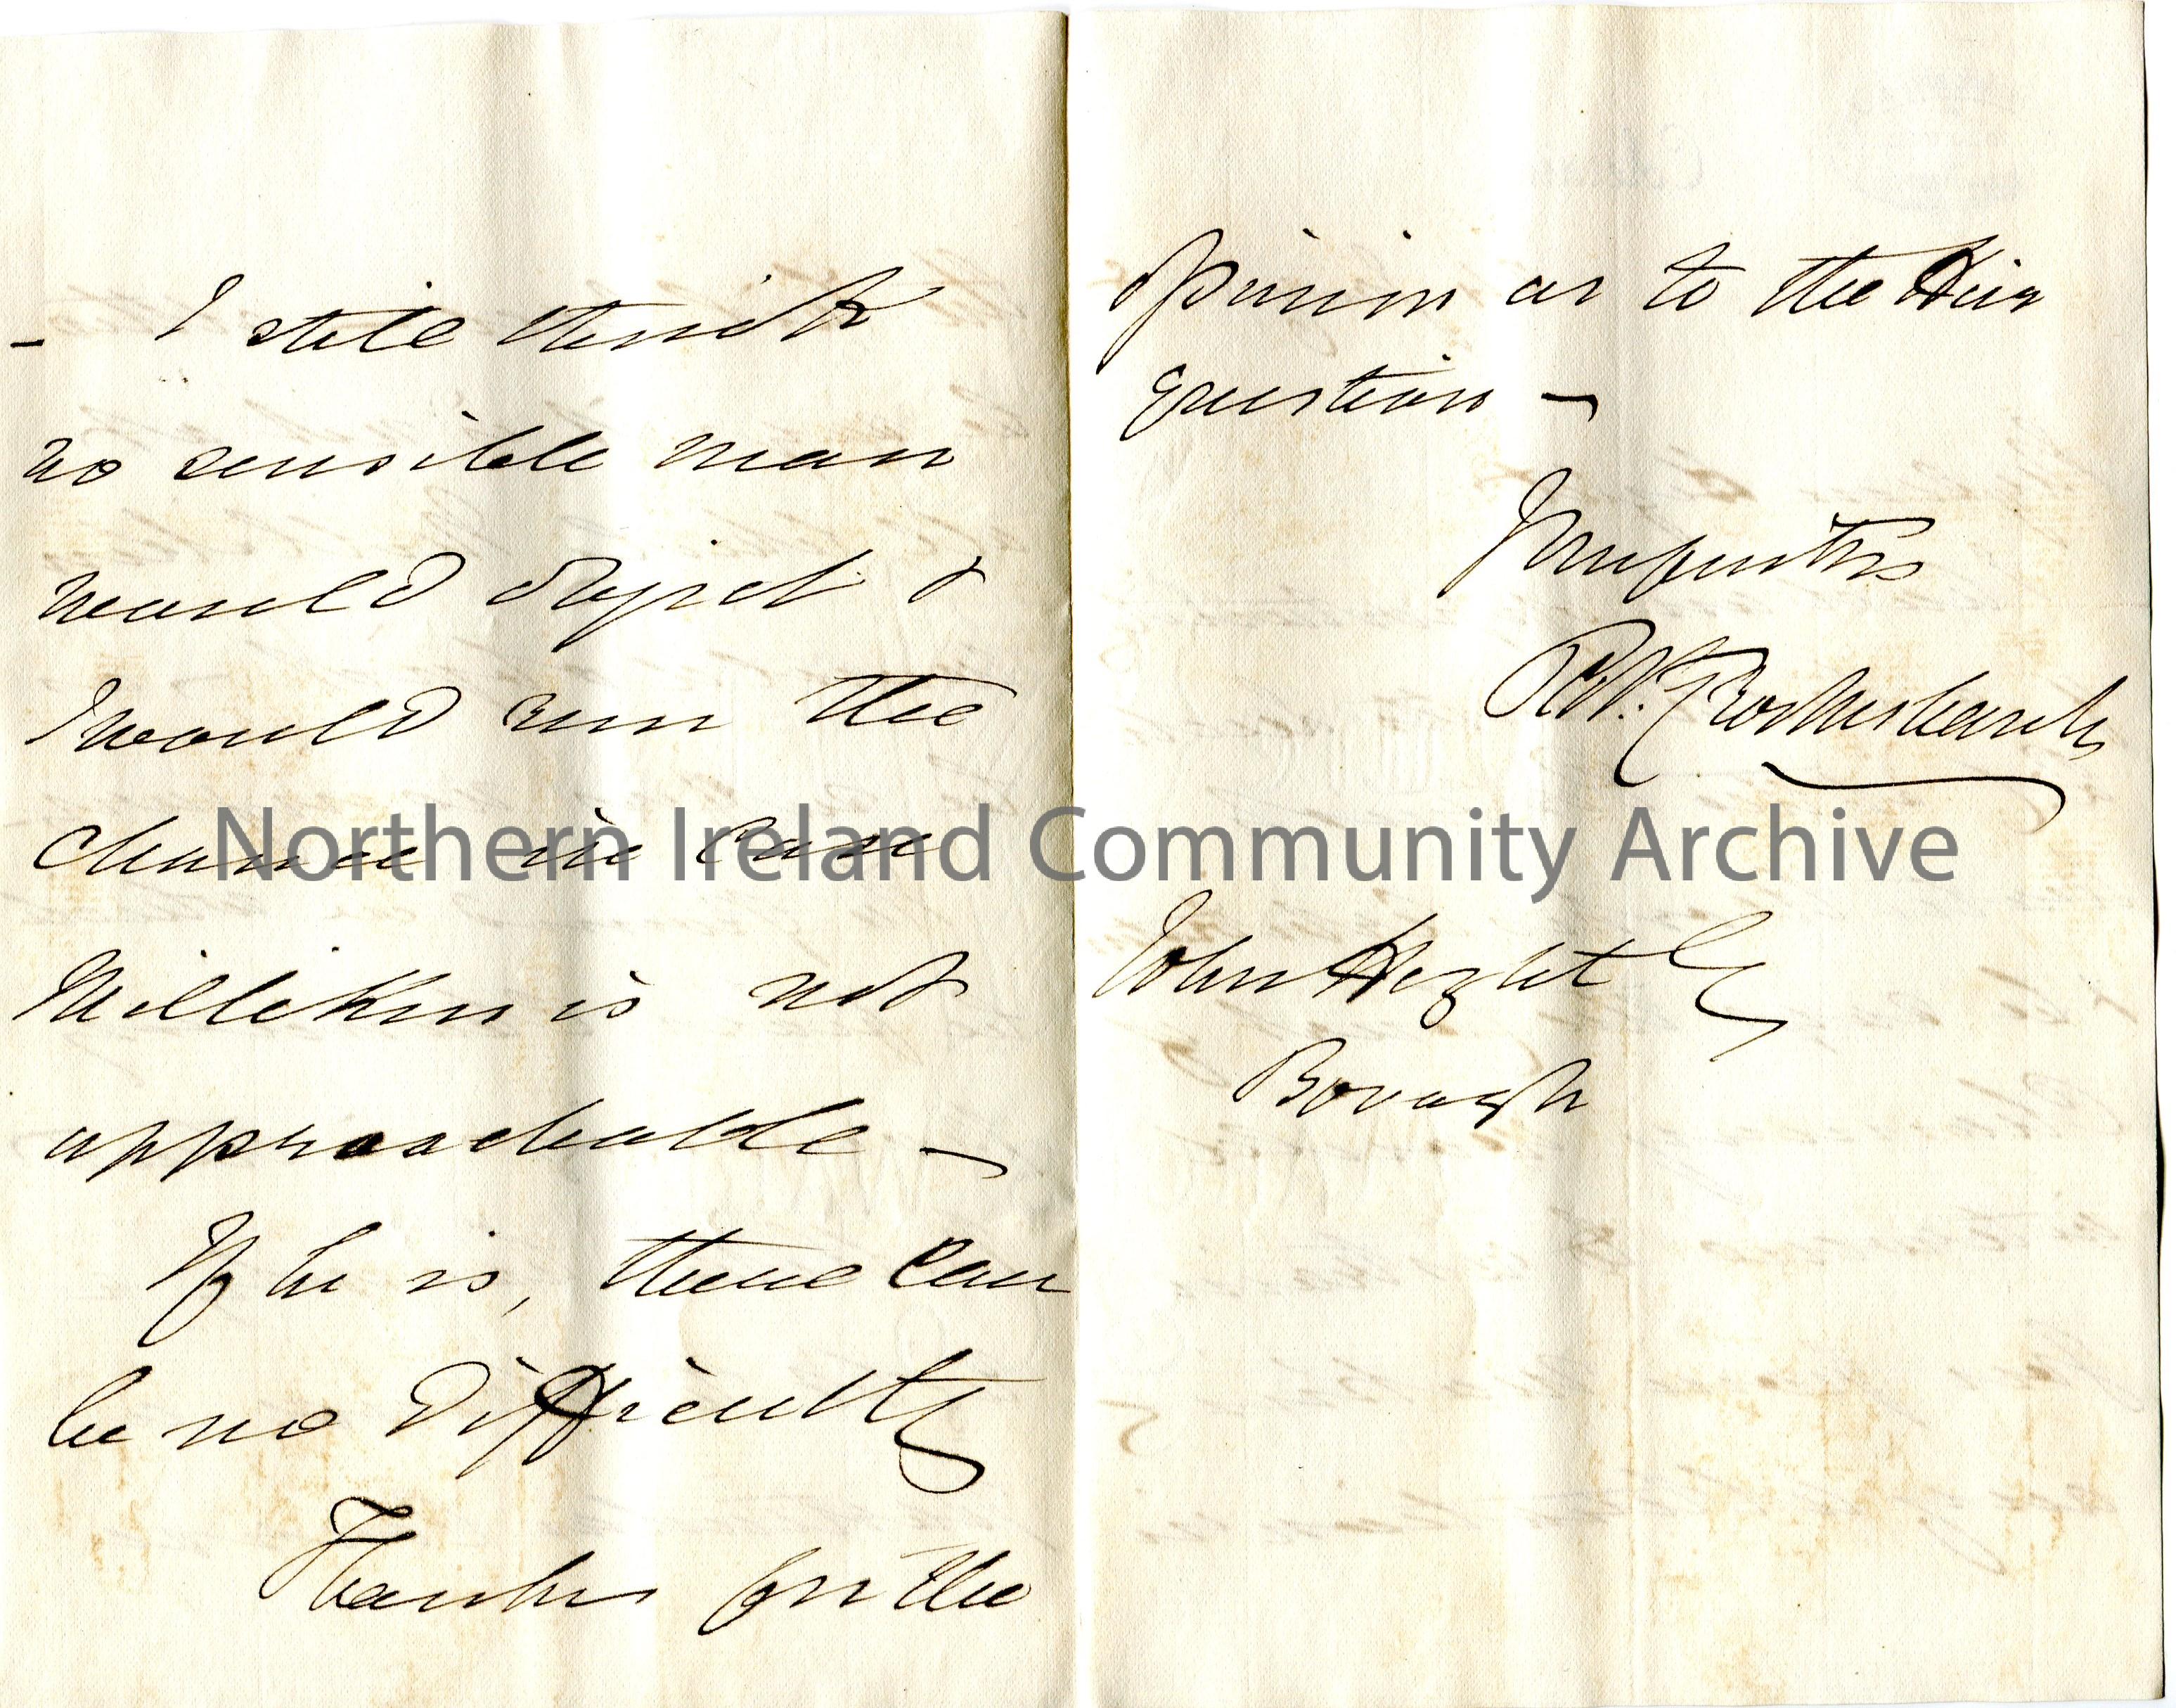 - I still think
no sensible man
would object &
I would run the
chance in case
Milliken is not
approachable -
If he is, there can
be no difficulty
Thanks for the
opinion as to the
question -
Yours
John
Northern Ireland Community Archive